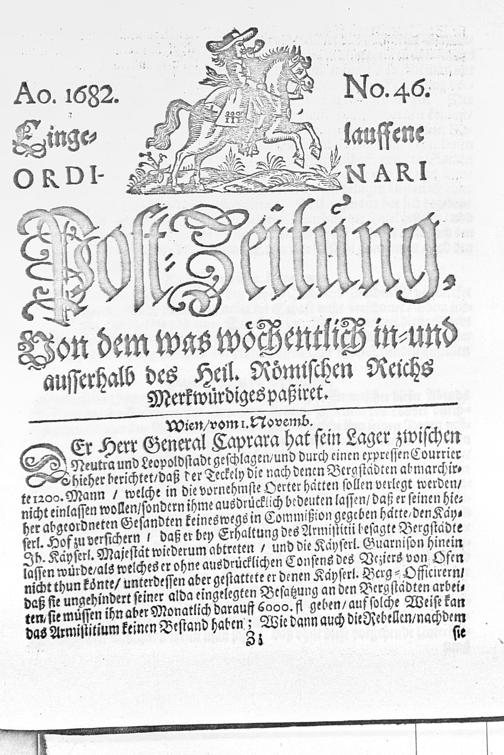 Ao. 1682.
No. 46.
Einge-
lauffene
ORDI-
NARI
Post-Zeitung,
Von dem was wöchentlich in-und
ausserhalb des Heil. Römischen Reichs
Merkwürdiges paßiret.
Wien/vom 1. Novemb.
DEr Herr General Caprara hat sein Lager zwischen
Neutra und Leopoldstadt geschlagen/und durch einen expressen Courrier
hieher berichtet/daß der Teckely die nach denen Bergstädten abmarchir-
te 1200. Mann / welche in die vornehmste Oerter hätten sollen verlegt werden/
nicht einlassen wollen/sondern ihme ausdrücklich bedeuten lassen/daß er seinen hie-
her abgeordneten Gesandten keineswegs in Commißion gegeben hätte/den Käy-
serl. Hof zu versichern / daß er bey Erhaltung des Armistitii besagte Bergstädte
Ih. Käyserl. Majestät wiederum abtreten / und die Käyserl. Guarnison hinein
lassen würde/als welches er ohne ausdrücklichen Consens des Veziers von Ofen
nicht thun könte/unterdessen aber gestattete er denen Käyserl. Berg-Officirern/
daß sie ungehindert seiner alda eingelegten Besatzung an den Bergstädten arbei-
ten/sie müssen ihn aber Monatlich darauff 6000. fl geben/auf solche Weise kan
das Armistitium keinen Bestand haben; Wie dann auch die Rebellen/nachdem
Zz
sie